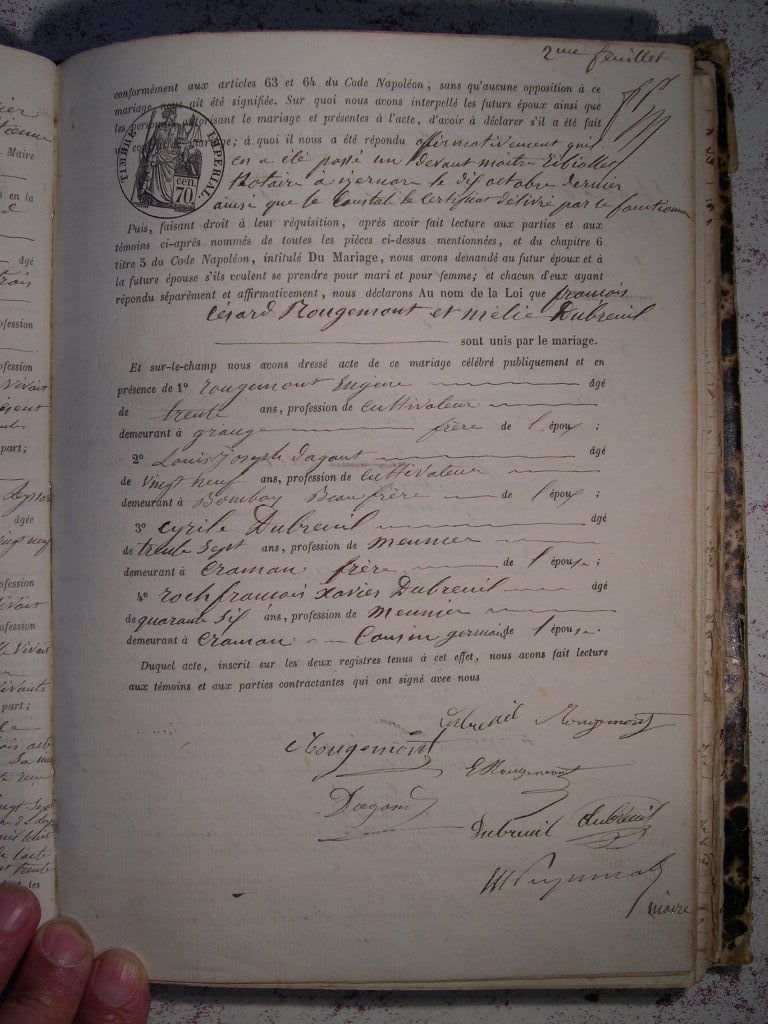 2me feuillet
conformément aux articles 63 et 64 du Code Napoléon, sans qu'aucune opposition à ce
mariage nous ait été signifiée. Sur quoi nous avons interpellé les futurs époux ainsi que
les personnes autorisant le mariage et présentes à l'acte, d'avoir à déclarer s'il a été fait
contrat de mariage; à quoi il nous a été répondu affirmativement qu'il
en a été passé un devant maitre
Notaire à izernore le dix octobre dernier
ainsi que le Constate le Certificat délivré par le fonctionnaire
TIMBRE IMPERIAL
70 cen.
Puis, faisant droit à leur réquisition, après avoir fait lecture aux parties et aux
témoins ci-après nommés de toutes les pièces ci-dessus mentionnées, et du chapitre 6
titre 5 du Code Napoléon, intitulé Du Mariage, nous avons demandé au futur époux et à
la future épouse s'ils veulent se prendre pour mari et pour femme; et chacun d'eux ayant
répondu séparément et affirmativement, nous déclarons Au nom de la Loi que françois
Césard Rougemont et mélie Dubreuil
sont unis par le mariage.
Et sur-le-champ nous avons dressé acte de ce mariage célébré publiquement et en
présence de 1° rougemont Eugene âgé
de trente ans, profession de cultivateur
demeurant à grange frère de l'époux ;
2° Louis joseph dagand âgé
de vingt neuf ans, profession de cultivateur
demeurant à Bombay Beau frère de l'époux ;
3° cyrile Dubreuil âgé
de trente sept ans, profession de meunier
demeurant à Craman frère de l'épouse ;
4° roch francois xavier Dubreuil âgé
de quarante six ans, profession de meunier
demeurant à Craman Cousin germain de l'épouse.
Duquel acte, inscrit sur les deux registres tenus à cet effet, nous avons fait lecture
aux témoins et aux parties contractantes qui ont signé avec nous
Dubreuil Rougemont
Rougemont
E Rougemont
Dagand
Dubreuil dubreuil
maire